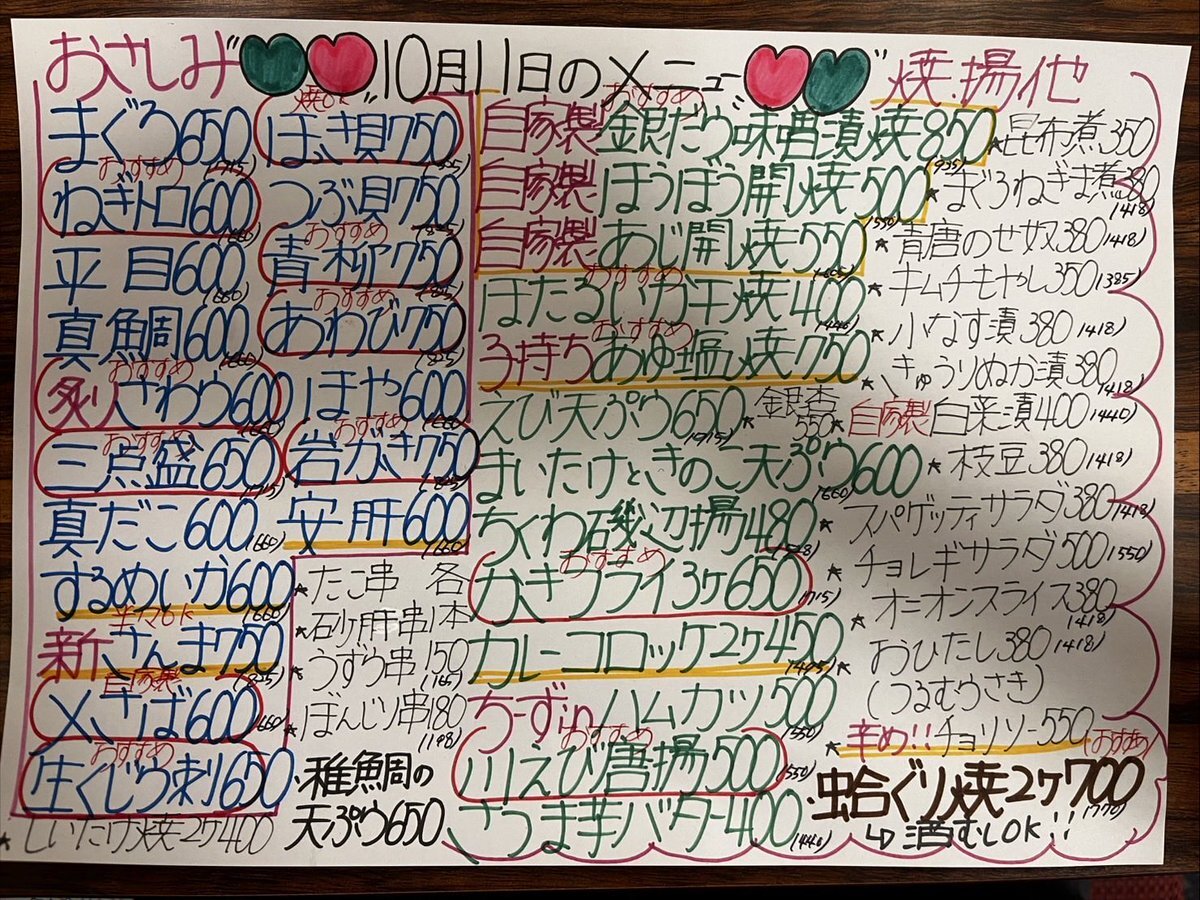 おさしみ
10月11日のメニュー
焼.揚.他
まぐろ650
(715)
おすすめ
ねぎトロ600
(660)
平目600
(660)
真鯛600
(660)
おすすめ
炙りさわら600
(660)
おすすめ
三点盛650
(715)
真だこ600
(660)
するめいか600
(660)
生マOK
新さんま750
(825)
自家製
〆さば600
(660)
おすすめ
生くじら刺650
★しいたけ焼2ヶ400
焼OK
ほっき貝750
(825)
つぶ貝750
(825)
おすすめ
青柳750
(825)
おすすめ
あわび750
(825)
ほや600
(660)
おすすめ
岩がき750
(825)
安肝600
(660)
★たこ串 各
★砂肝串1本
★うずら串150
(165)
★ぼんじり串180
(198)
・稚鯛の
天ぷら650
おすすめ
自家製銀だら味噌漬焼850
(935)
自家製ほうぼう開焼500
(550)
自家製あじ開焼550
(605)
おすすめ
ほたるいか干焼400
(440)
おすすめ
子持ちあゆ塩焼750
えび天ぷら650
(715)
★銀杏
550
まいたけときのこ天ぷら600
(660)
ちくわ磯辺揚480
(528)
おすすめ
かきフライ3ヶ650
(715)
カレーコロッケ2ヶ450
(495)
ちーずinハムカツ500
(550)
おすすめ
川えび唐揚500
(550)
さつま芋バター400
(440)
★昆布煮350
★まぐろねぎま煮380
(418)
★青唐のせ奴380(418)
★キムチもやし350(385)
★小なす漬380(418)
★きゅうりぬか漬380
(418)
自家製白菜漬400(440)
★枝豆380(418)
★スパゲッティサラダ380
(418)
★チョレギサラダ500(550)
★オニオンスライス380
(418)
★おひたし380(418)
(つるむらさき)
★辛め!!チョリソー550(おすすめ
・蛤ぐり焼2ヶ700
(770)
↳酒むしOK!!